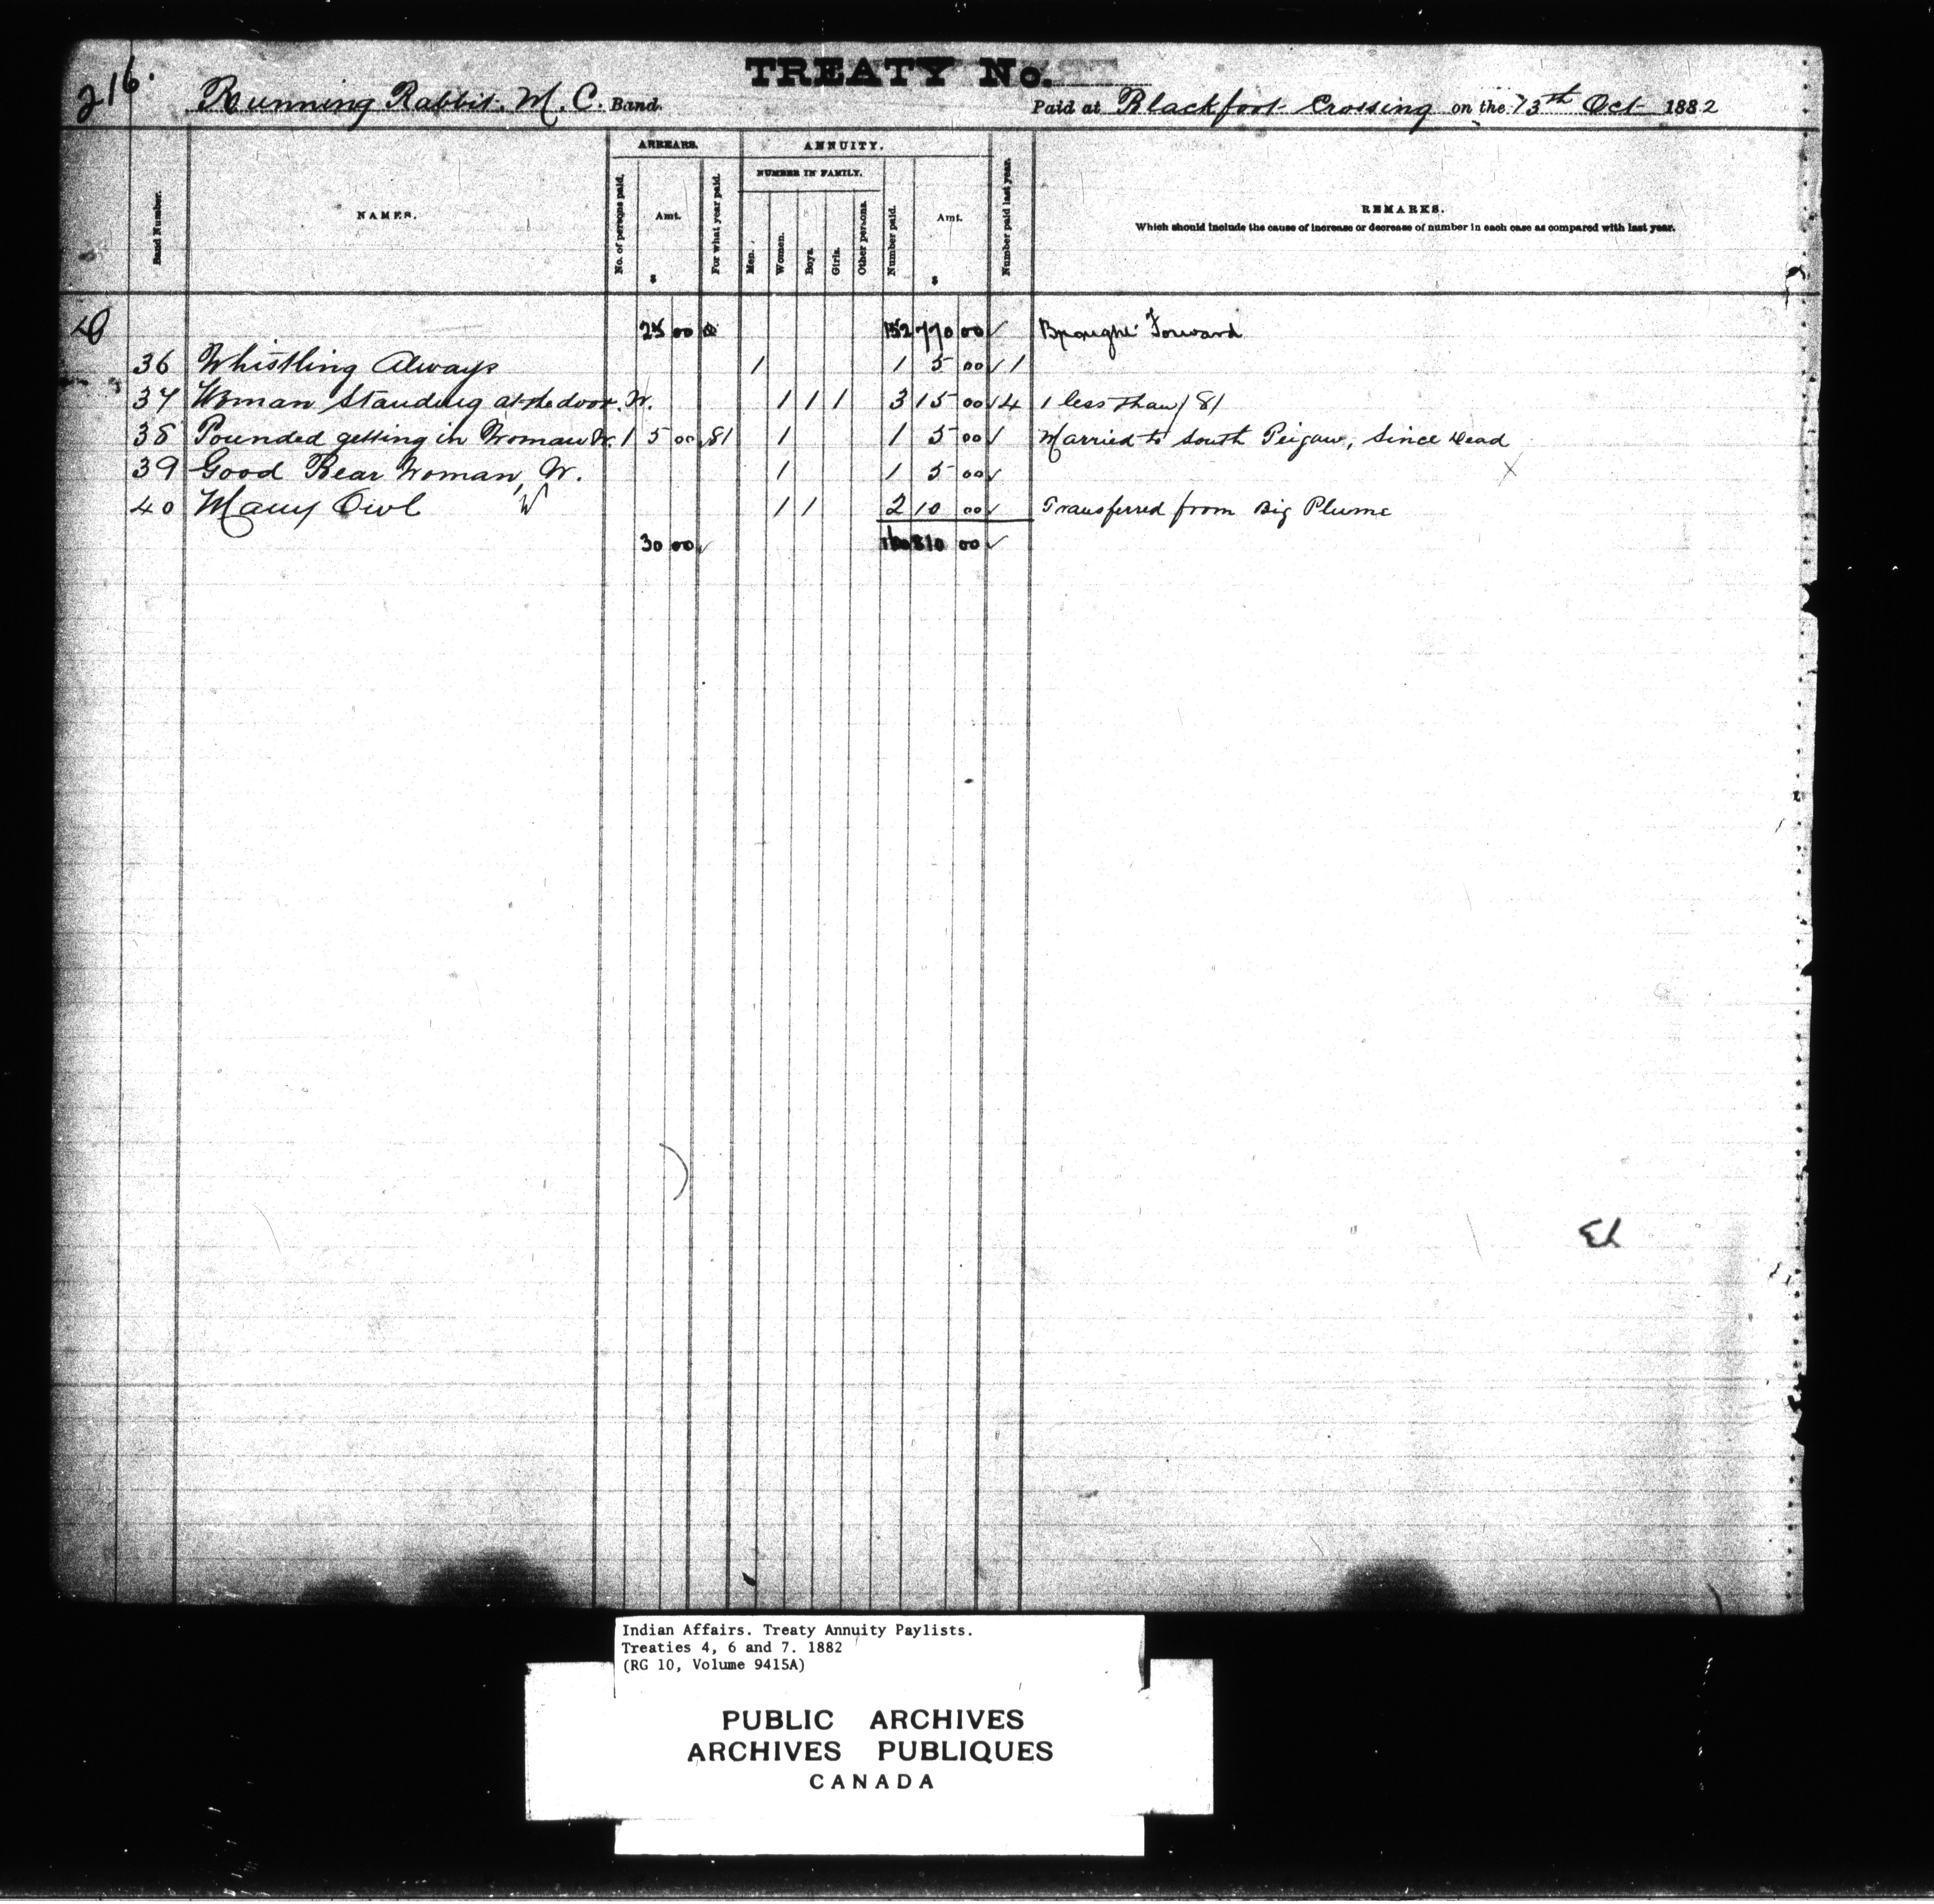 216.
TREATY No.
Running Rabbit. M. C. Band.
Paid at Blackfoot Crossing on the 13th Oct 1882
ARREARS.
ANNUITY.
NUMBER IN FAMILY.
Band Number.
NAMES.
No. of persons paid.
Amt.
$
For what year paid.
Men.
Women.
Boys.
Girls.
Other persons.
Number paid.
Amt.
$
Number paid last year.
REMARKS.
Which should include the cause of increase or decrease of number in each case as compared with last year.
25 00 152 770 00 ✓ Brought Forward
36 Whistling Always 1 1 5 00 ✓ 1
37 Woman Standing at the door. W. 1 1 1 3 15 00 ✓ 4 1 less than / 81
38 Pounded getting in Woman W. 1 5 00 81 1 1 5 00 ✓ Married to South Peigan, Since Dead
39 Good Bear Woman, W. 1 1 5 00 ✓ X
40 Many Owl W 1 1 2 10 00 ✓ Transferred from Big Plume
30 00 ✓ 160 810 00 ✓
Indian Affairs. Treaty Annuity Paylists.
Treaties 4, 6 and 7. 1882
(RG 10, Volume 9415A)
PUBLIC ARCHIVES
ARCHIVES PUBLIQUES
CANADA